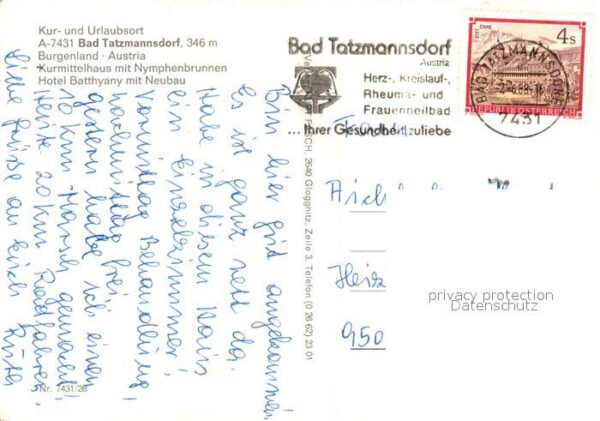 Kur- und Urlaubsort
A-7431 Bad Tatzmannsdorf, 346 m
Burgenland · Austria
Kurmittelhaus mit Nymphenbrunnen
Hotel Batthyany mit Neubau
Bin hier gut angekommen
Es ist ganz nett da.
Habe in diesem Haus
ein Einzelzimmer!
Vormittag Behandlung
nachmittag frei
gestern habe ich einen
10 km Marsch gemacht
Heute 20 km Radfahren
Liebe Grüsse an Euch
Nr. 7431/28
2640 Gloggnitz, Zeile 3, Telefon (0 26 62) 23 01
Bad Tatzmannsdorf
Austria
Herz-, Kreislauf-,
Rheuma- und
Frauenheilbad
...Ihrer Gesundheit zuliebe
4 S
REPUBLIK ÖSTERREICH
BAD TATZMANNSDORF
7431
950
privacy protection
Datenschutz